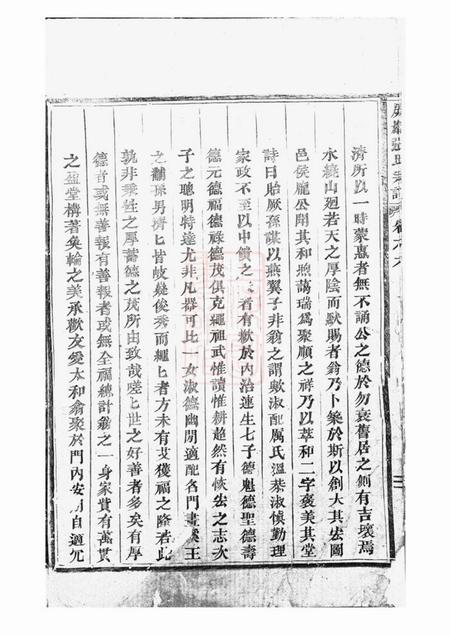 濟所以一時蒙惠者無不誦公之德於勿衰舊居之側有吉壤焉
水繞山廻若天之厚陰而默賜者翁乃卜築於斯以創大其宏圖
邑侯龐公聞其和煦藹瑞爲聚順之祥乃以萃和二字褒美其堂
詩曰貽厥孫謀以燕翼子非翁之謂歟淑配厲氏溫恭淑慎勤理
家政不至以中饋之者有歉於內治連生七子德魁德聖德壽
德元德福德祿德茂俱克繩祖武惟讀惟耕超然有恢宏之志次
子之聰明特達尤非凡器可比一女淑德幽閒適配名門畫溪王
之黼孫男濟匕皆岐嶷俊秀而繩匕者方未有艾獲福之隆者此
孰非秉性之厚蓄德之茂所由致哉嗟匕世之好善者多矣有厚
德者或無善報有善報者或無全福總計翁之一身家貲有萬貫
之盈堂構著奐輪之美承歡友愛太和翁聚於門內安閒自適允
張氏宗譜 卷六